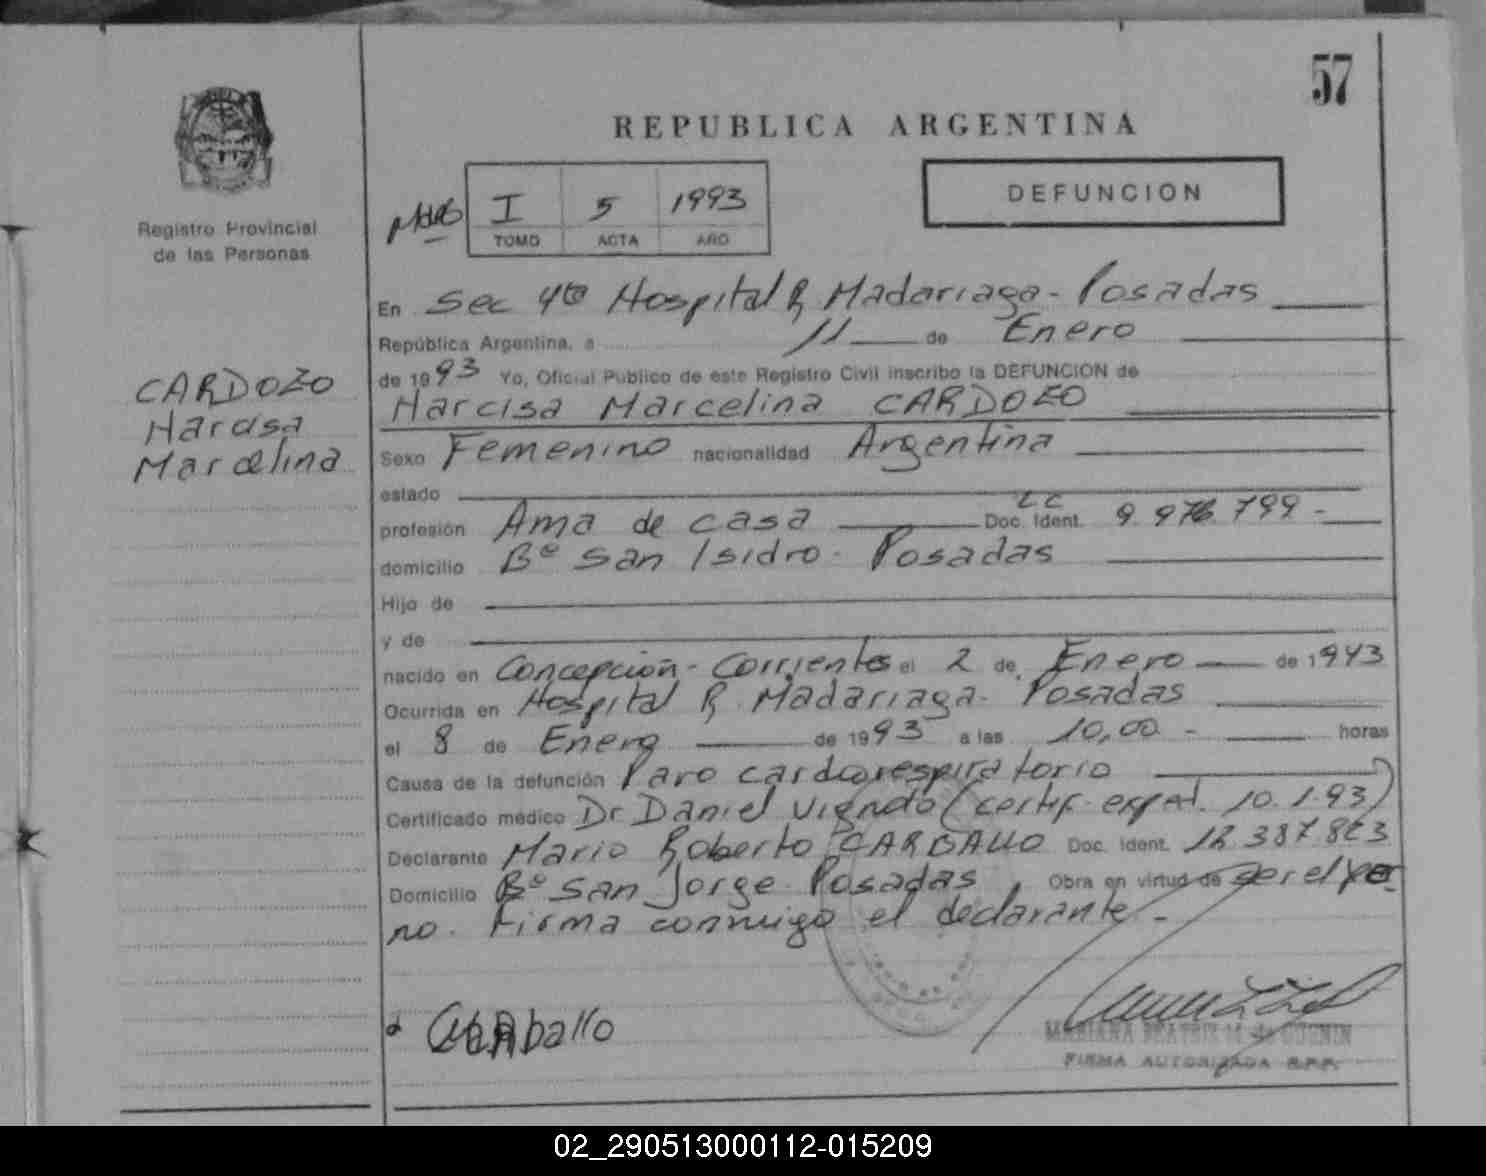 57
REPUBLICA ARGENTINA
DEFUNCION
I 5 1993
TOMO ACTA AÑO
Registro Provincial
de las Personas
CARDOZO
Narcisa
Marcelina
En Sec 4ta Hospital R Madariaga - Posadas
República Argentina, a 11 de Enero
de 1993 Yo, Oficial Público de este Registro Civil inscribo la DEFUNCION de
Narcisa Marcelina CARDOZO
Sexo Femenino nacionalidad Argentina
estado
profesión Ama de casa Doc. Ident. LC 9.976.799 -
domicilio Bº San Isidro - Posadas
Hijo de
y de
nacido en Concepción - Corrientes el 2 de Enero de 1943
Ocurrida en Hospital R. Madariaga - Posadas
el 8 de Enero de 1993 a las 10,00 - horas
Causa de la defunción Paro cardiorespiratorio
Certificado médico Dr Daniel (certif. exped. 10.1.93)
Declarante Mario Roberto CARBALLO Doc. Ident.
Domicilio Bº San Jorge - Posadas Obra en virtud de ser el yer
no. Firma conmigo el declarante -
Carballo
MARIANA BEATRIZ M de GUENIN
FIRMA AUTORIZADA R.P.P.
02_290513000112-015209